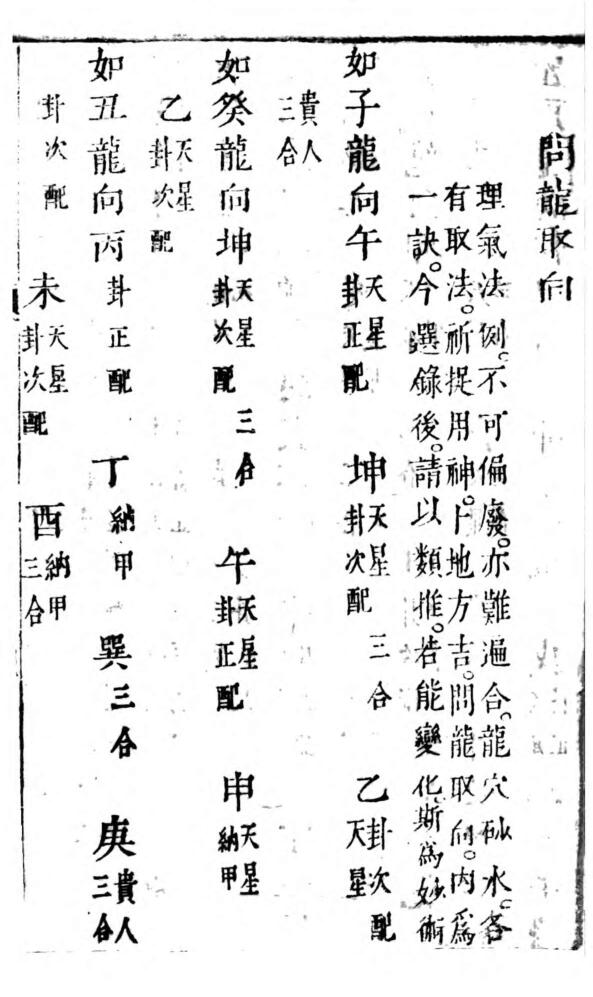 問龍取向
理氣法例。不可偏廢。亦難遍合。龍穴砂水。各
有取法。祈捉用神。卜地方吉。問龍取向。內爲
一訣。今選錄後。請以類推。若能變化。斯爲妙術
如子龍向午天星卦正配 坤天星卦次配 三合 乙卦次配天星
貴人三合
如癸龍向坤天星卦次配 三合 午天星卦正配 申天星納甲
乙天星卦次配
如丑龍向丙卦正配 丁納甲 巽三合 庚貴人三合
卦次配 未天星卦次配 酉納甲三合